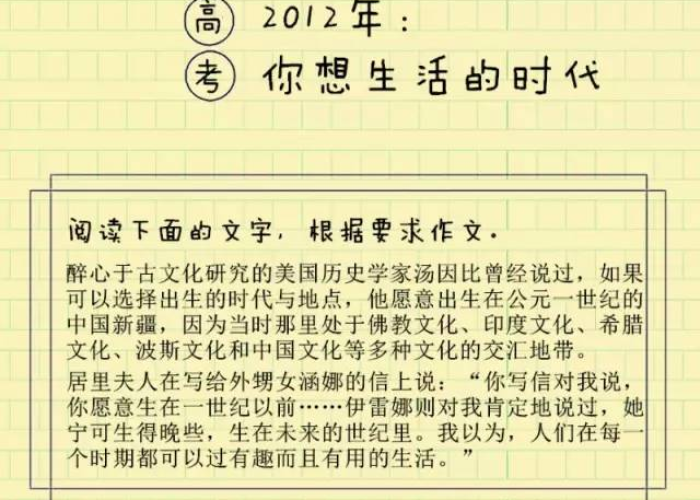 高 2012年：
考 你想生活的时代
阅读下面的文字，根据要求作文。
醉心于古文化研究的美国历史学家汤因比曾经说过，如果
可以选择出生的时代与地点，他愿意出生在公元一世纪的
中国新疆，因为当时那里处于佛教文化、印度文化、希腊
文化、波斯文化和中国文化等多种文化的交汇地带。
居里夫人在写给外甥女涵娜的信上说：“你写信对我说，
你愿意生在一世纪以前……伊雷娜则对我肯定地说过，她
宁可生得晚些，生在未来的世纪里。我以为，人们在每一
个时期都可以过有趣而且有用的生活。”